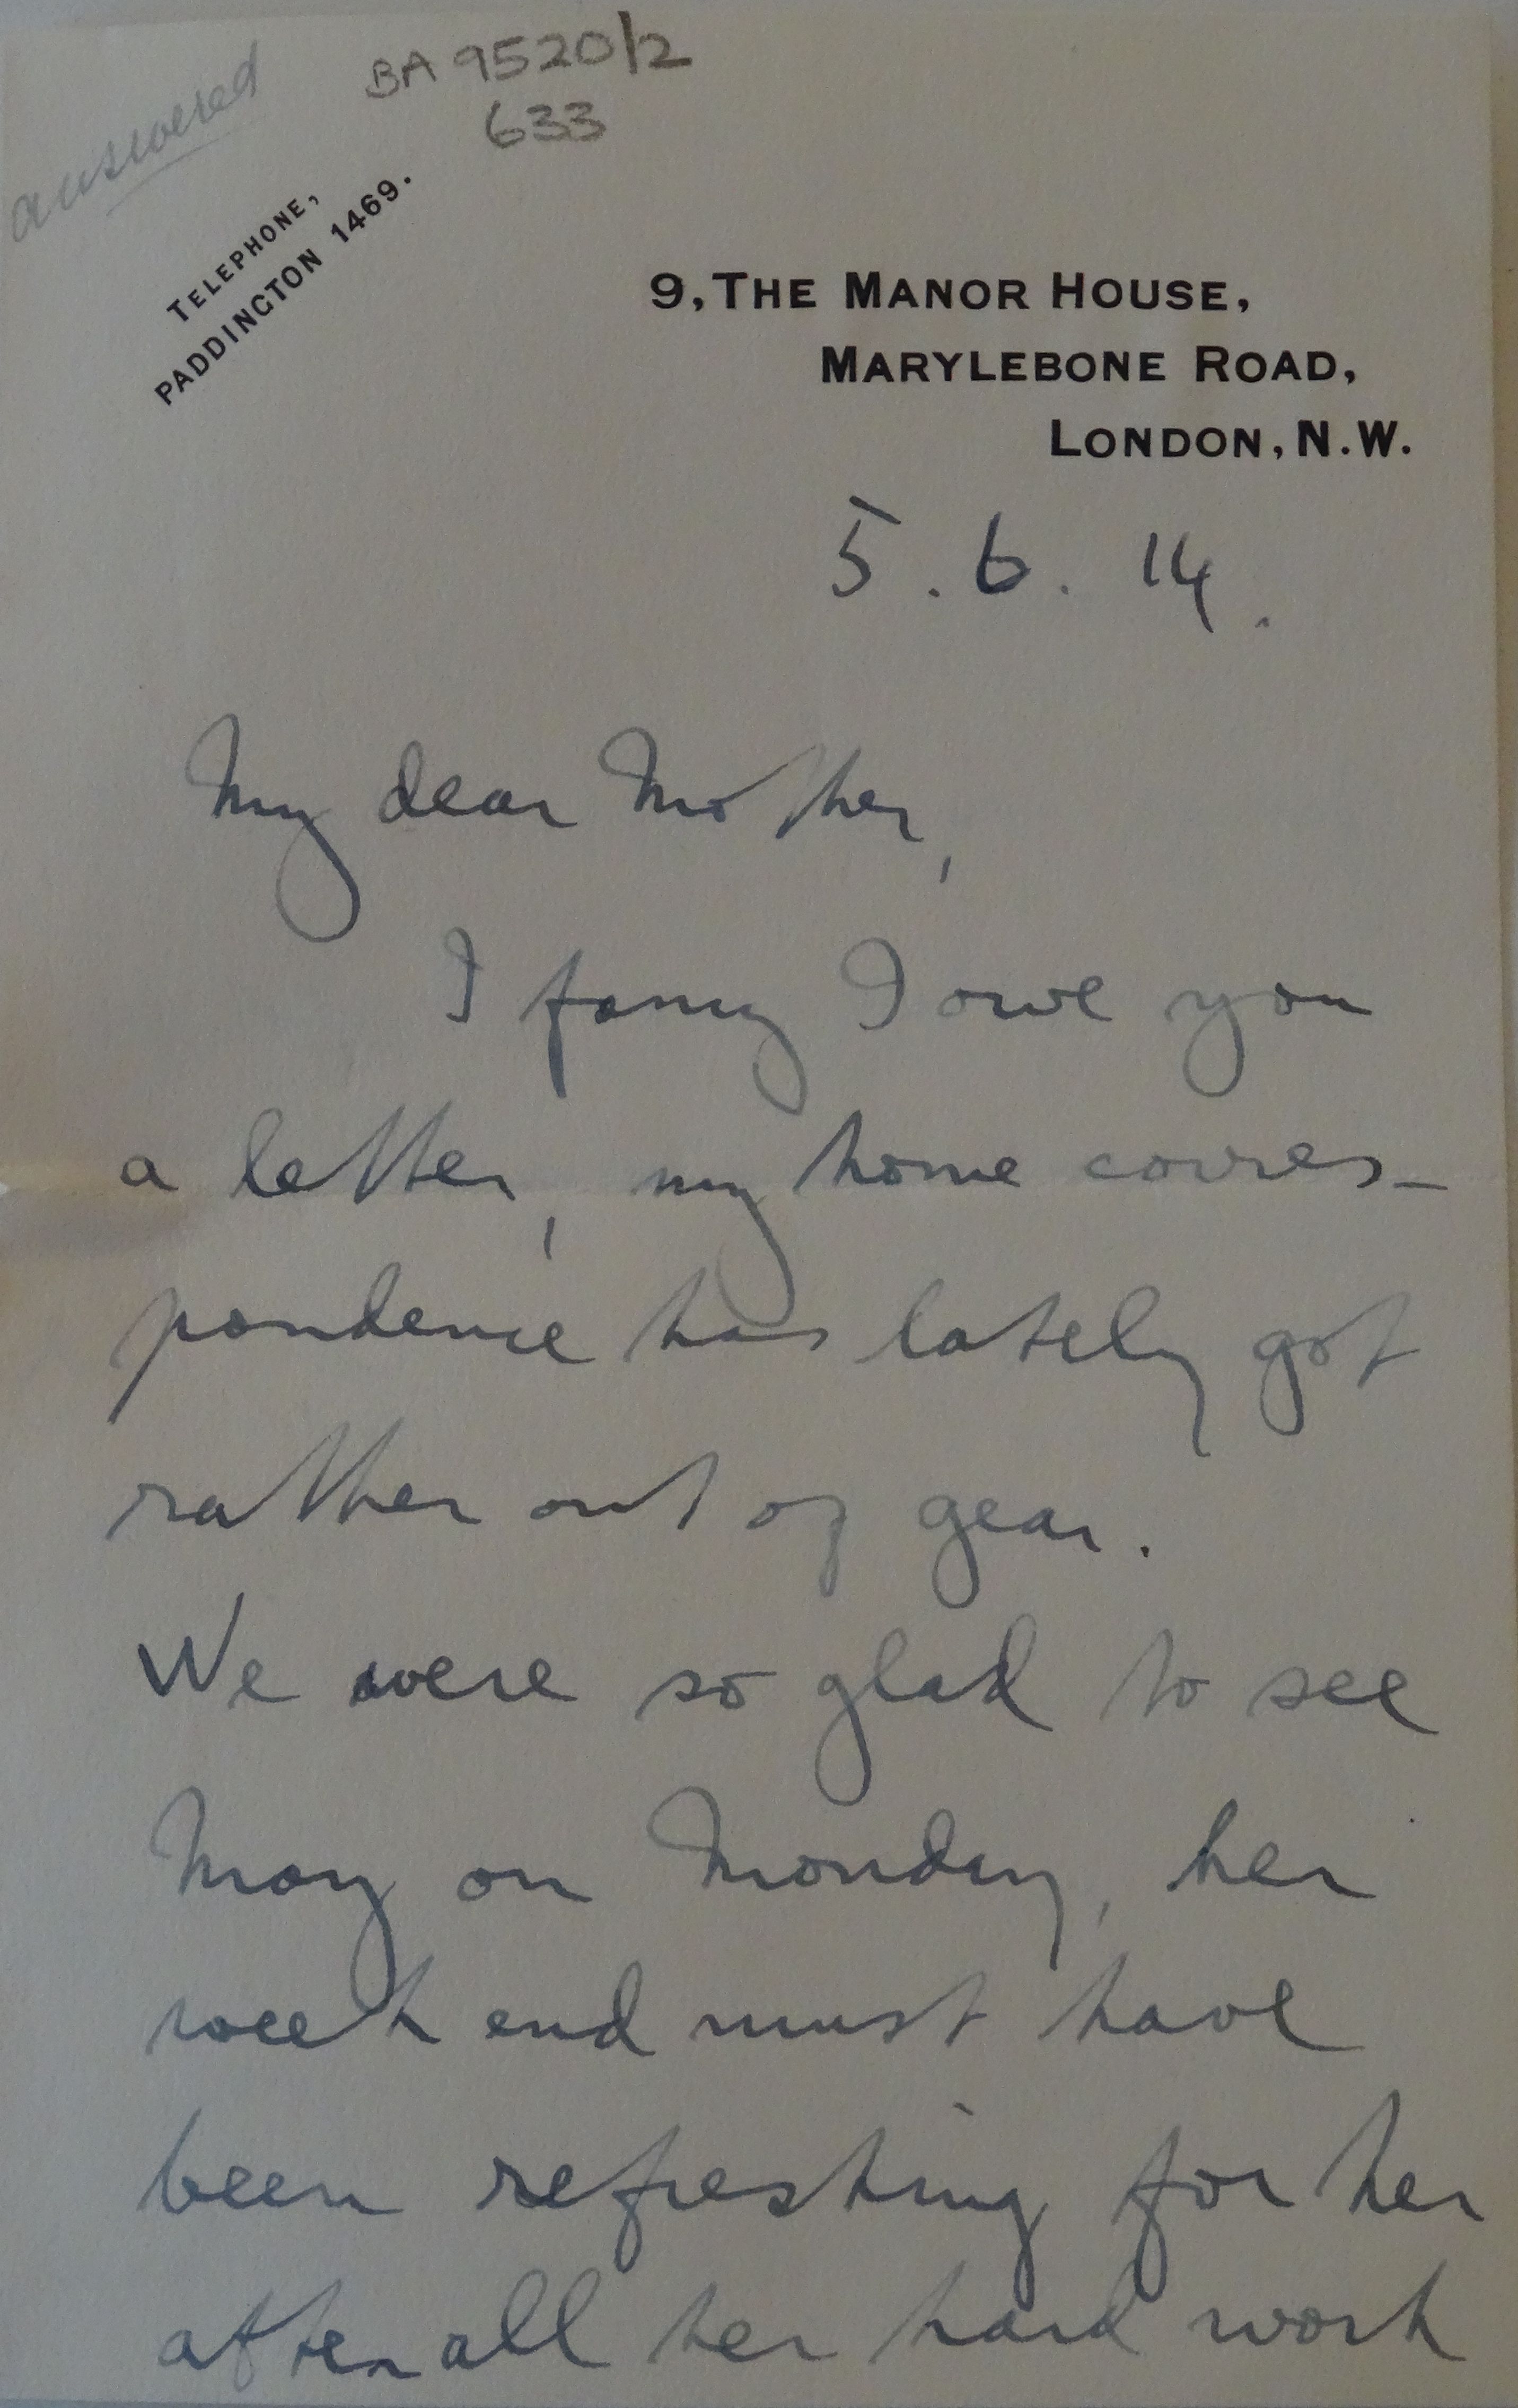 answered
BA 9520/2
633
TELEPHONE,
PADDINGTON 1469.
9, THE MANOR HOUSE,
MARYLEBONE ROAD,
LONDON, N.W.
5. 6. 14.
My dear Mother,
I fancy I owe you
a letter, my home corres-
pondence has lately got
rather out of gear.
We were so glad to see
May on Monday, her
week end must have
been refreshing for her
after all her hard work